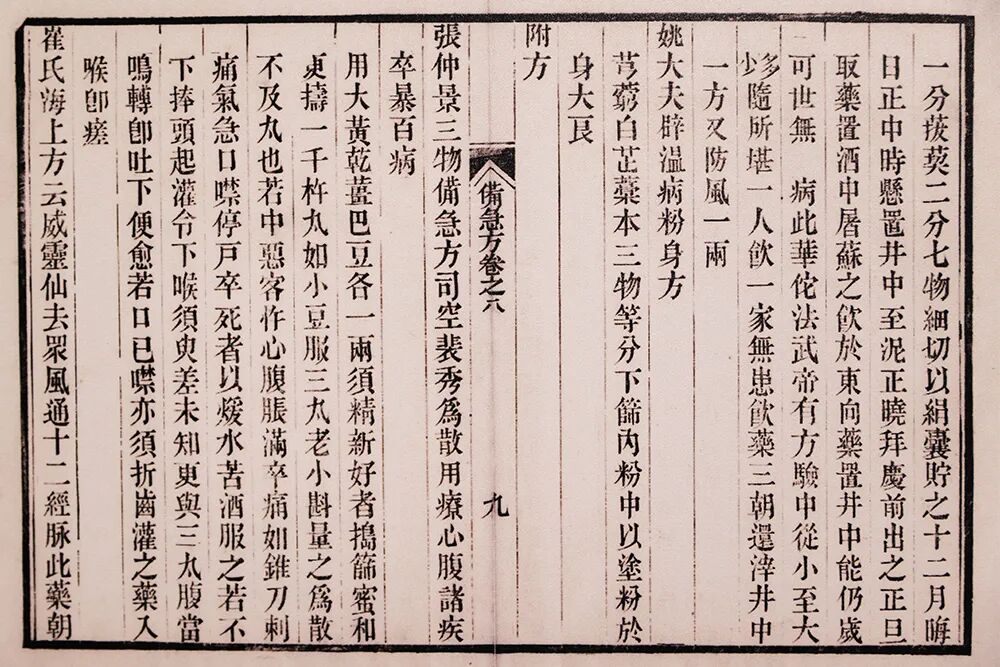 一分菝葜二分七物細切以絹囊貯之十二月晦
日正中時懸置井中至泥正曉拜慶前出之正旦
取藥置酒中屠蘇之飲於東向藥置井中能仍歲
可世無　病此華佗法武帝有方驗中從小至大
少多隨所堪一人飲一家無患飲藥三朝還滓井中
一方又防風一兩
姚大夫辟溫病粉身方
芎藭白芷藁本三物等分下篩內粉中以塗粉於
身大良
附方
備急方卷之八
九
張仲景三物備急方司空裴秀爲散用療心腹諸疾
卒暴百病
用大黃乾薑巴豆各一兩須精新好者搗篩蜜和
更擣一千杵丸如小豆服三丸老小斟量之爲散
不及丸也若中惡客忤心腹脹滿卒痛如錐刀刺
痛氣急口噤停尸卒死者以煖水苦酒服之若不
下捧頭起灌令下喉須臾差未知更與三丸腹當
鳴轉卽吐下便愈若口已噤亦須折齒灌之藥入
喉卽瘥
崔氏海上方云威靈仙去眾風通十二經脈此藥朝